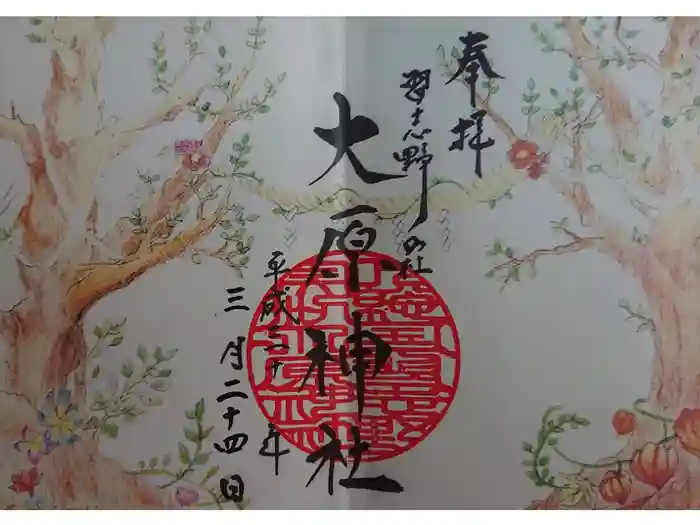 奉拝
習志野の社
大原神社
平成三十年
三月二十四日